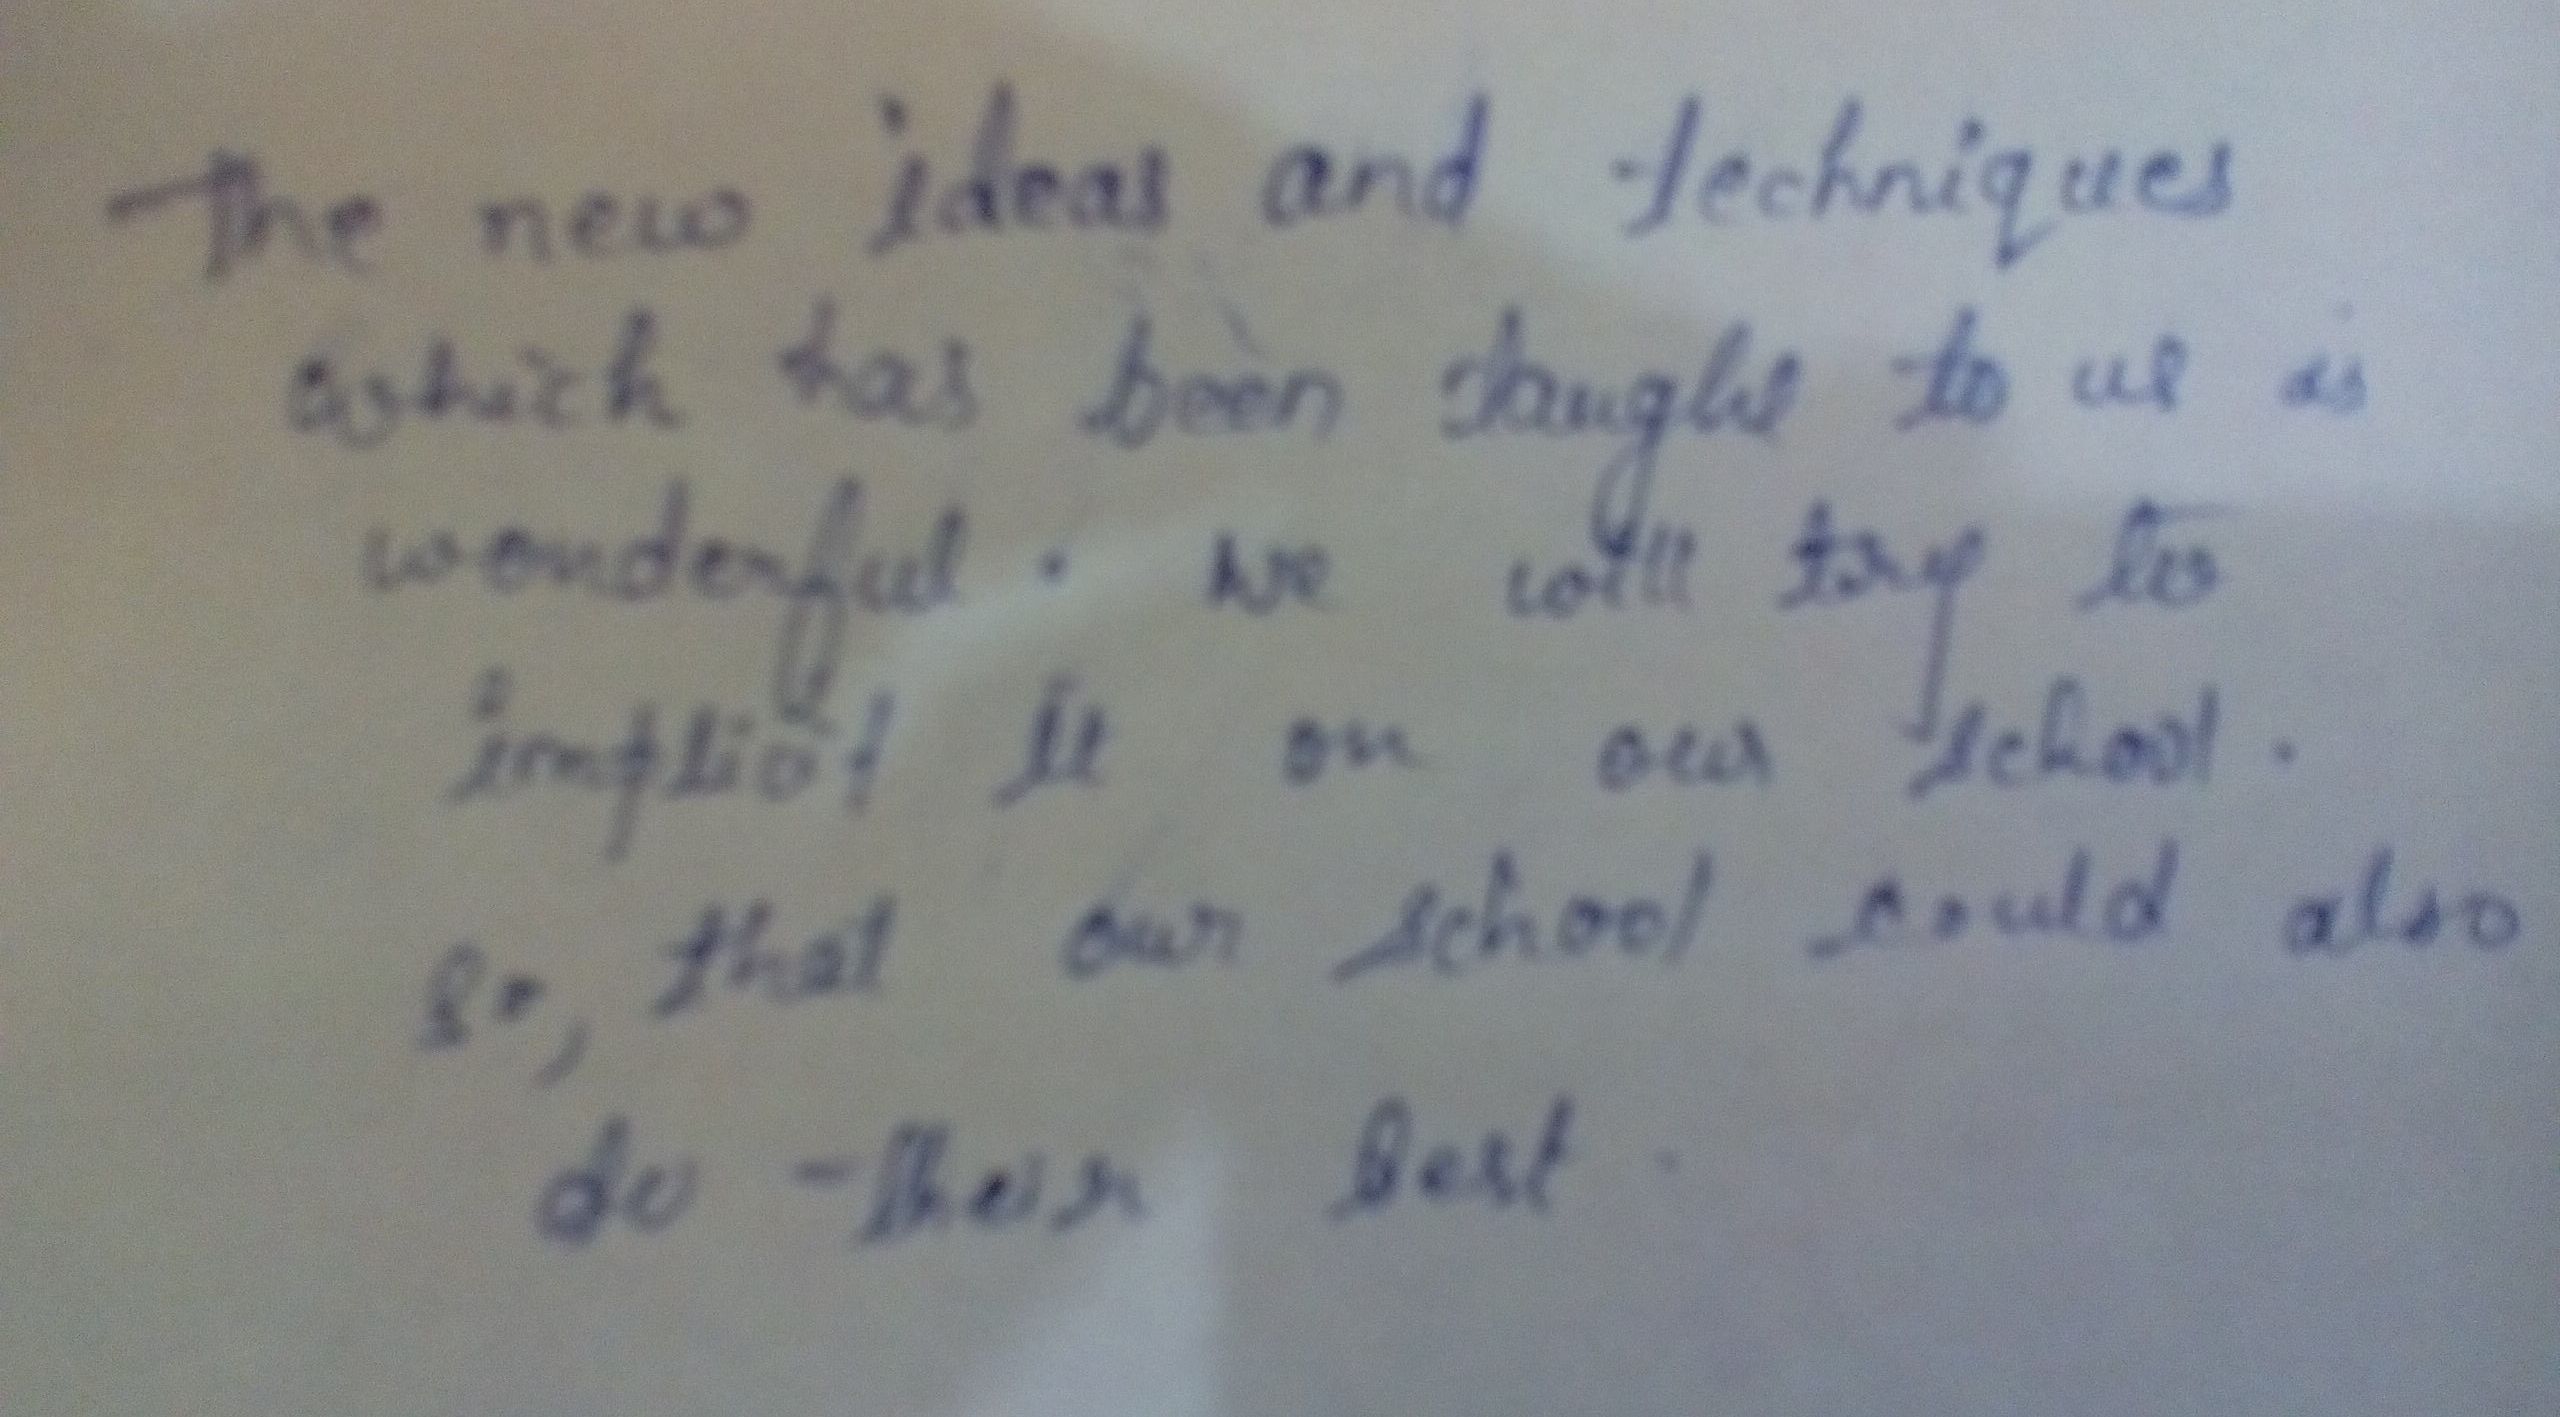 The new ideas and techniques
which has been taught to us is
wonderful. We will try to
it on our school.
so, that our school could also
do their best.